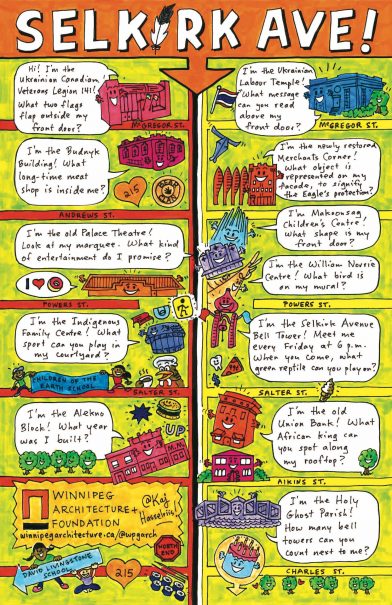 SELKIRK AVE!
Hi! I'm the
Ukrainian Canadian
Veterans Legion 141!
What two flags
flap outside my
front door?
McGREGOR ST.
I'm the Budnyk
Building! What
long-time meat
shop is inside me?
215
ANDREWS ST.
I'm the old Palace Theatre!
Look at my marquee. What kind
of entertainment do I promise?
I
POWERS ST.
I'm the Indigenous
Family Centre! What
sport can you play in
my courtyard?
CHILDREN OF THE
EARTH SCHOOL
SALTER ST.
I'm the Alekno
Block! What year
was I built?
M.M.
WINNIPEG
ARCHITECTURE+
FOUNDATION
winnipegarchitecture.ca/@wpgarch
@Kal
Hasselriis!
NORTH
END
DAVID LIVINGSTONE
SCHOOL
215
I'm the Ukrainian
Labour Temple!
What message
can you read
above my
front door?
McGREGOR ST.
I'm the newly restored
Merchants Corner!
What object is
represented on my
facade, to signify
the Eagle's protection?
I'm Makoonsag
Children's Centre!
What shape is my
front door?
I'm the William Norrie
Centre! What bird is
on my mural?
POWERS ST.
I'm the Selkirk Avenue
Bell Tower! Meet me
every Friday at 6 p.m.
When you come, what
green reptile can you play on?
SALTER ST.
I'm the old
Union Bank! What
African king can
you spot along
my rooftop?
AIKINS ST.
I'm the Holy
Ghost Parish!
How many bell
towers can you
count next to me?
CHARLES ST.